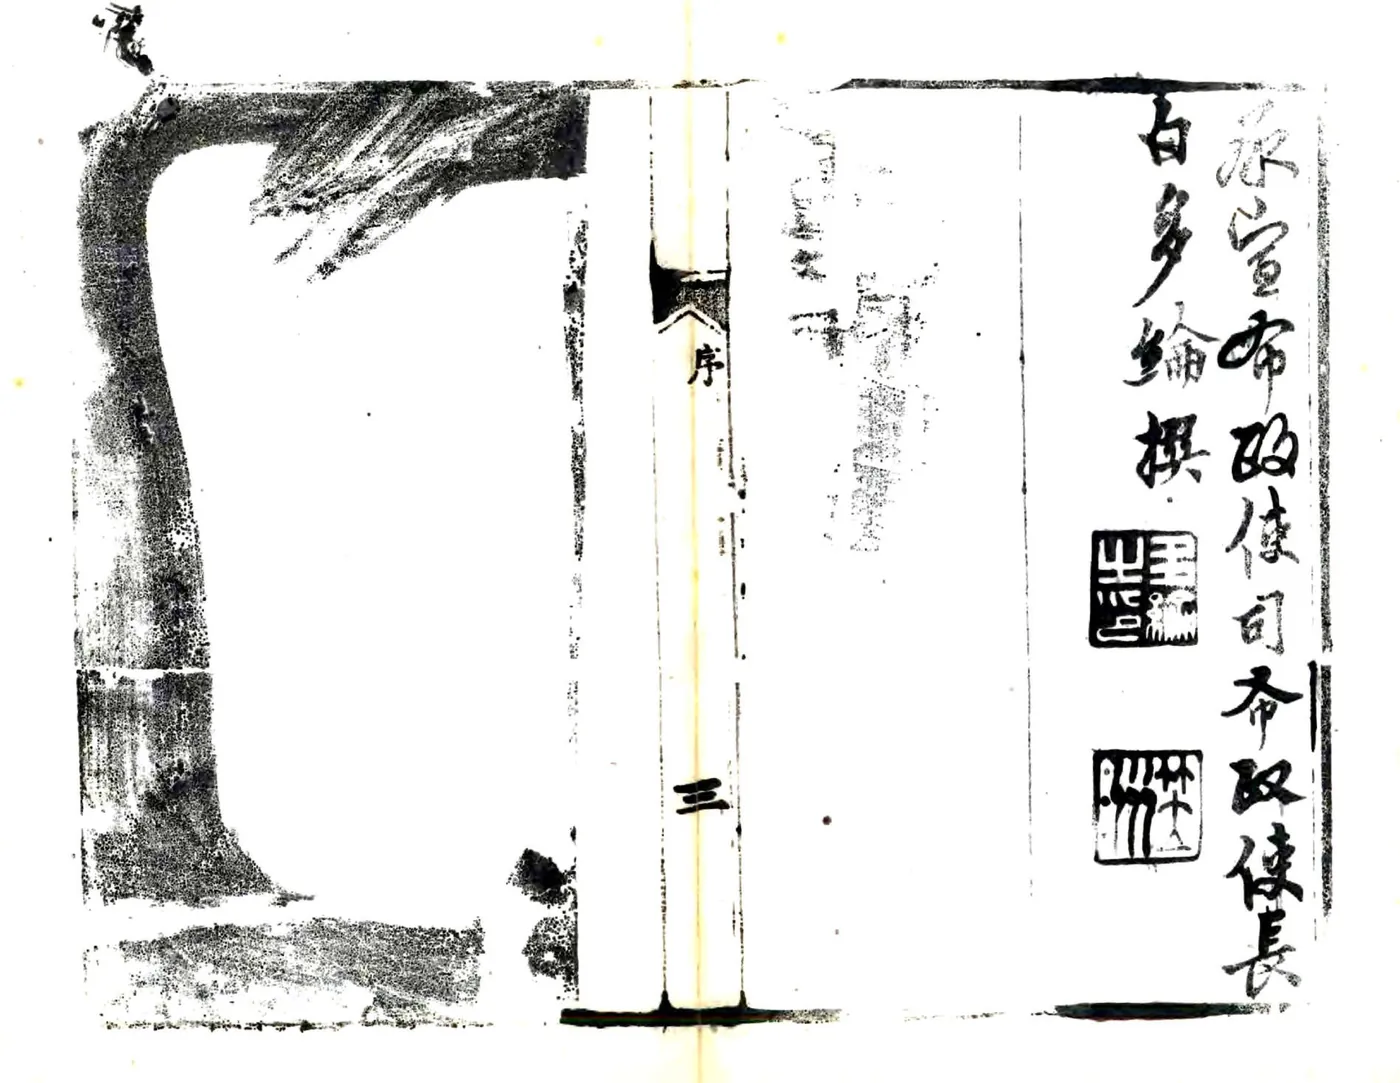 承宣布政使司布政使長
白多綸撰
多綸之印
序
三